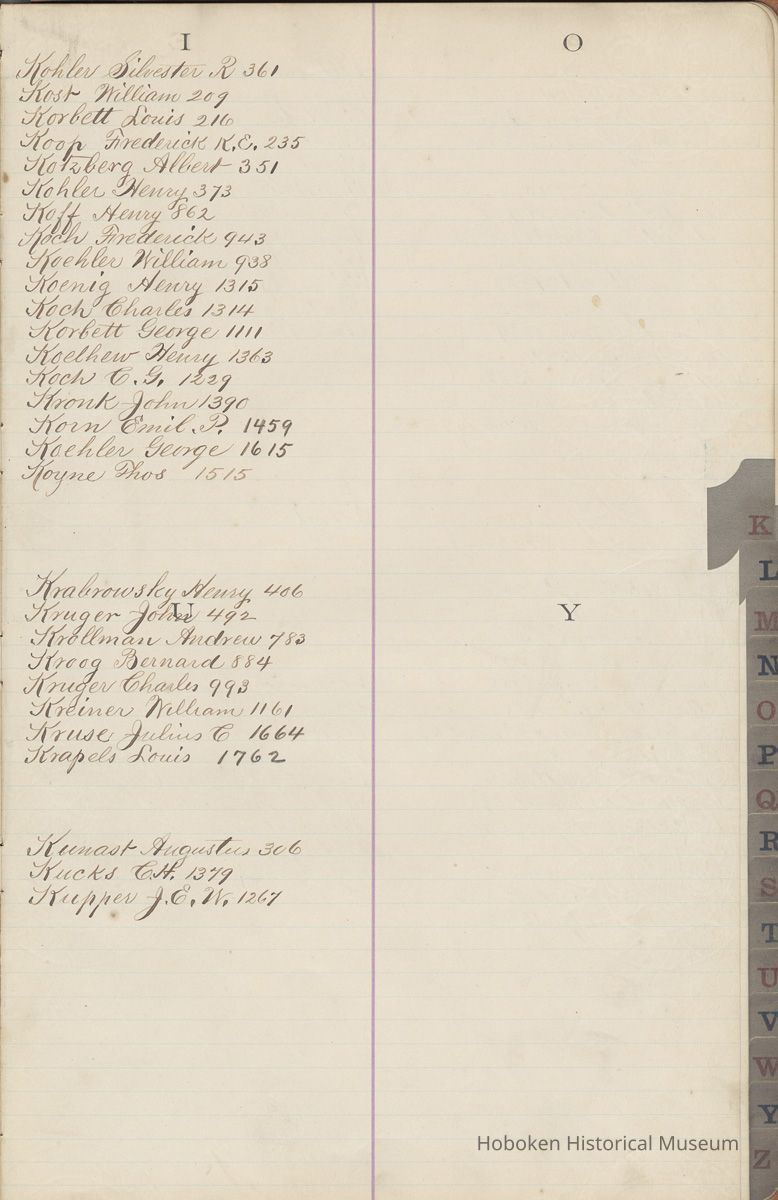 I
O
Kohler Silvester R 361
Kost William 209
Korbett Louis 216
Koop Frederick K.E. 235
Kotzberg Albert 351
Kohler Henry 373
Koff Henry 862
Koch Frederick 943
Koehler William 938
Koenig Henry 1315
Koch Charles 1314
Korbett George 1111
Koelhew Henry 1363
Koch C.G. 1229
Kronk John 1390
Korn Emil P. 1459
Koehler George 1615
Koyne Thos 1515
Krabrowsky Henry 406
U
Y
Kruger John 492
Krollman Andrew 783
Kroog Bernard 884
Kruger Charles 993
Kreiner William 1161
Kruse Julius C 1664
Krapels Louis 1762
Kunast Augustus 306
Kucks C.H. 1379
Kupper J.E.W. 1267
K
L
M
N
O
P
Q
R
S
T
U
V
W
Y
Z
Hoboken Historical Museum